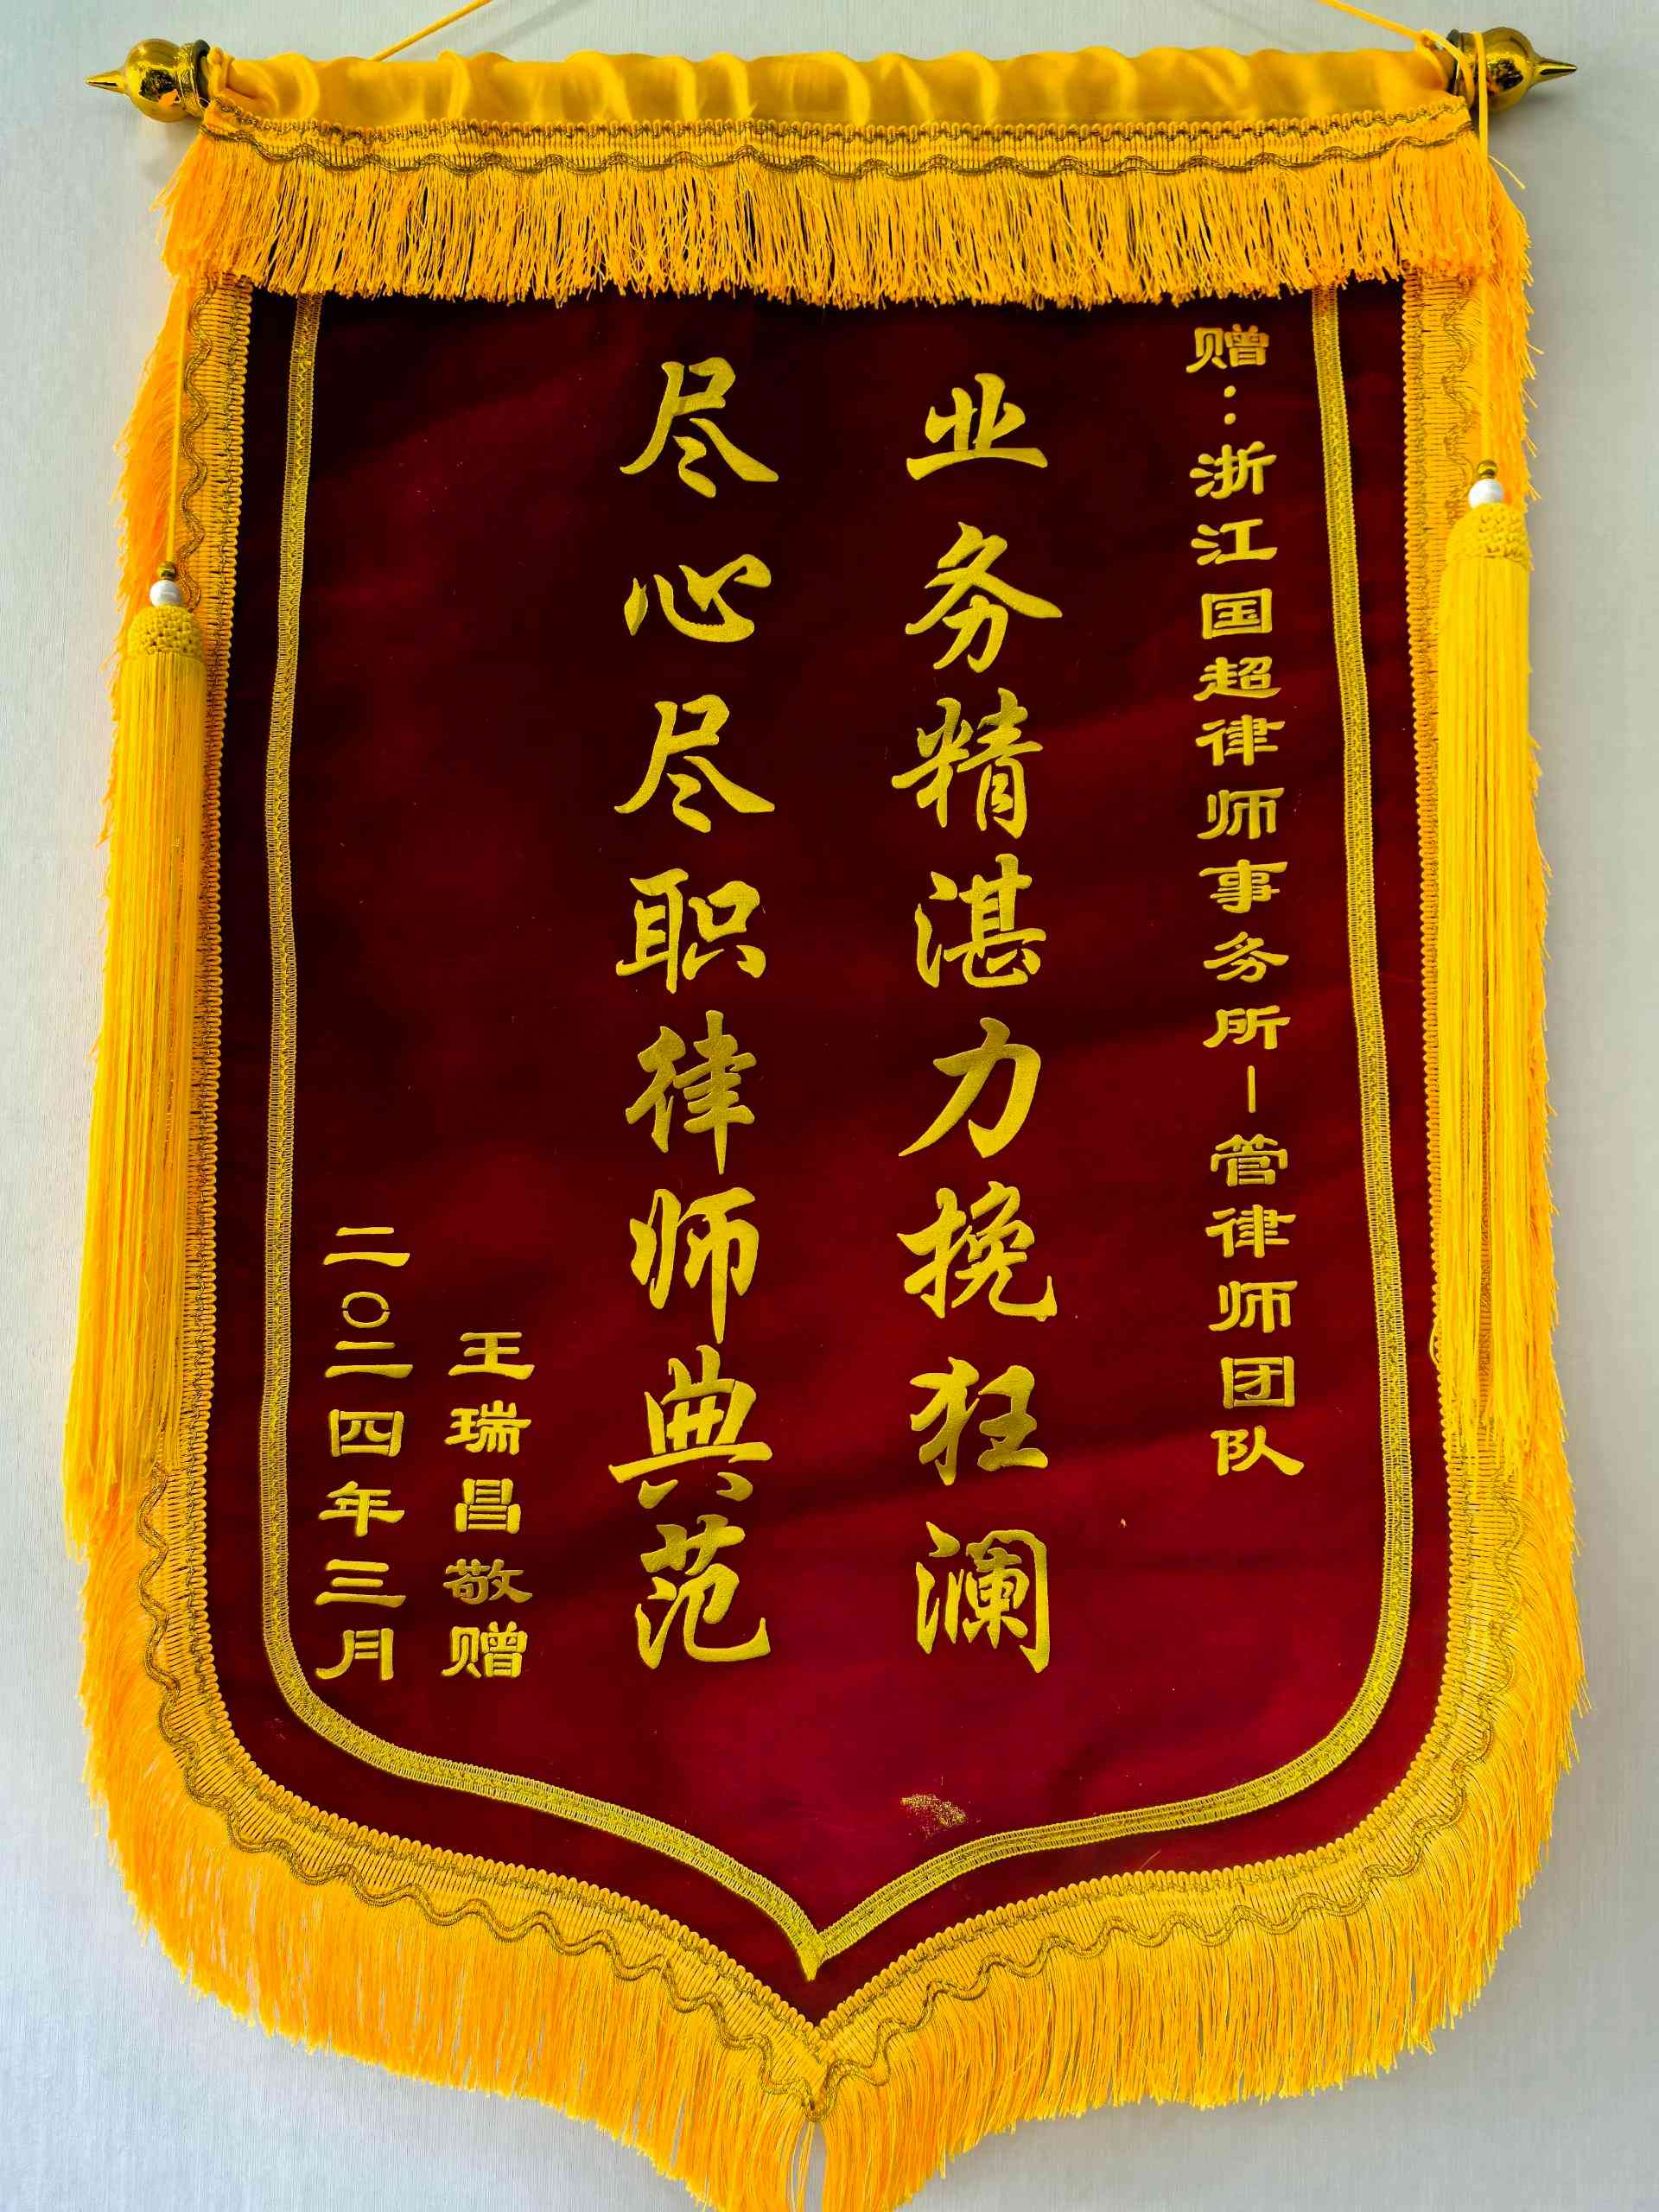 赠:浙江国超律师事务所-管律师团队
业务精湛力挽狂澜
尽心尽职律师典范
王瑞昌敬赠
二〇二四年三月